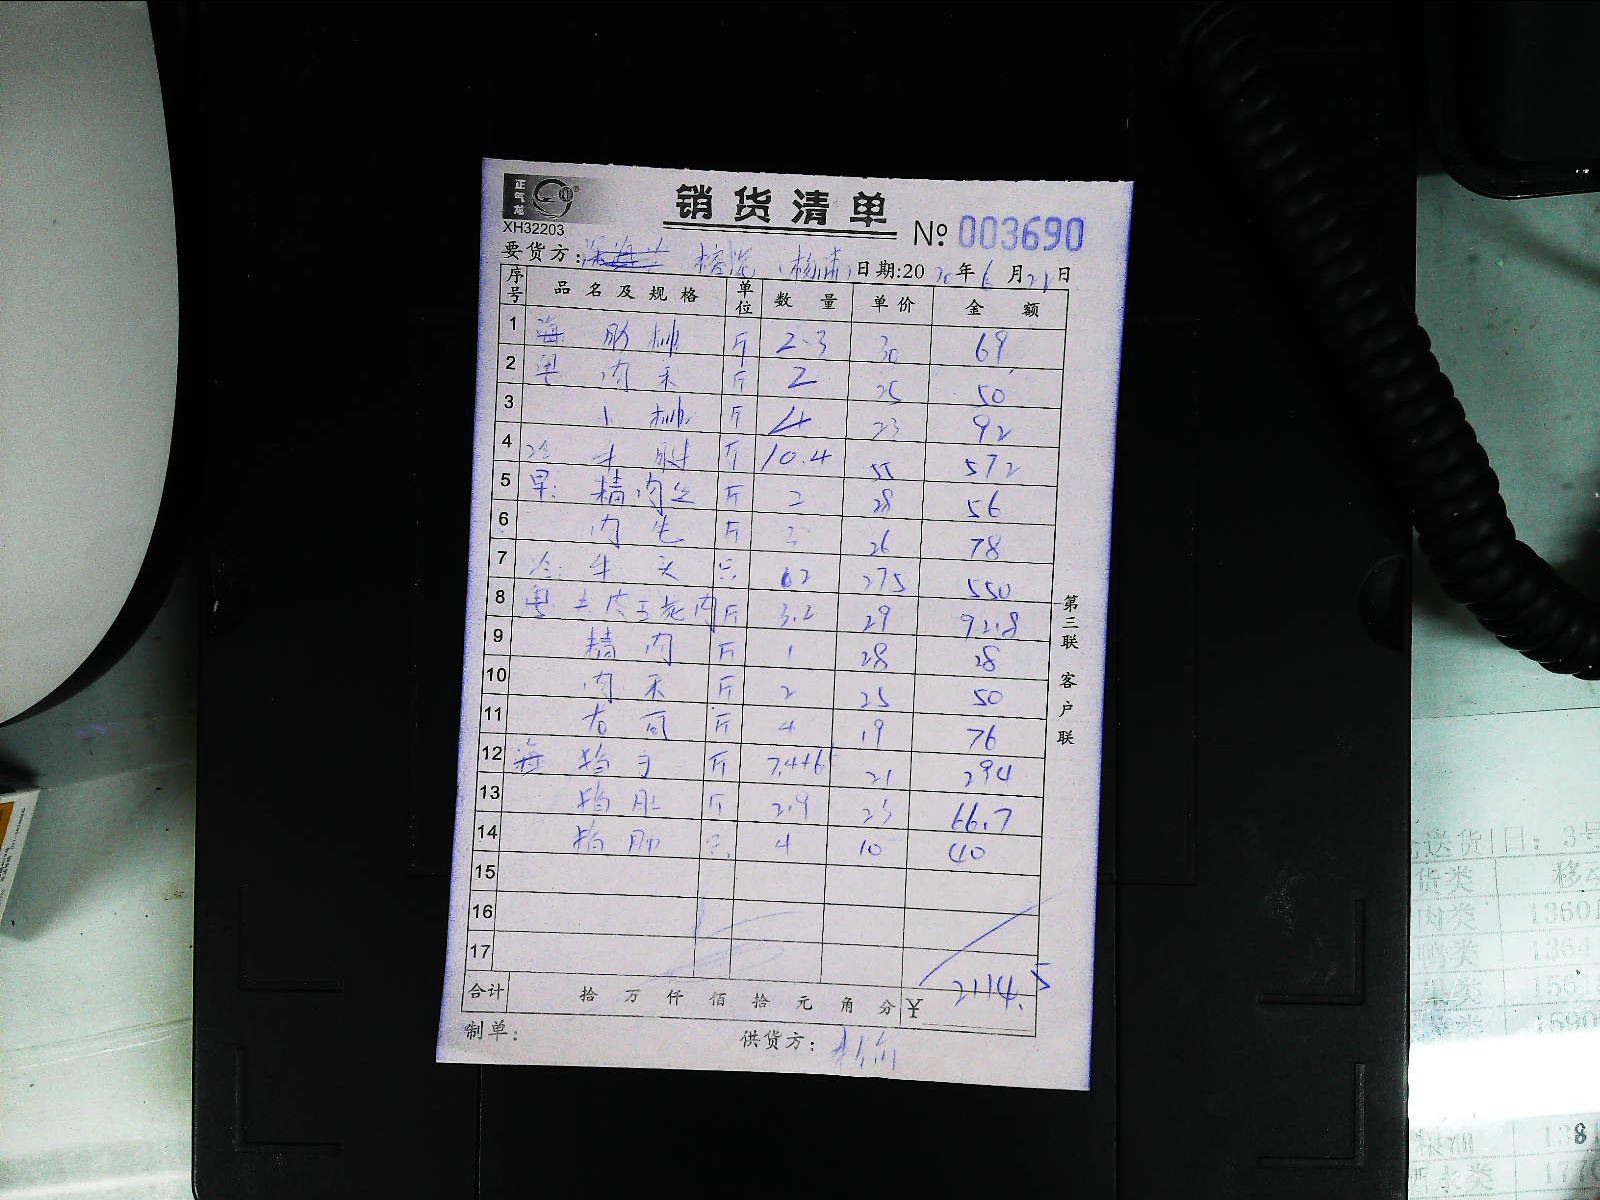 正气龙
XH32203
销货清单
№ 003690
要货方: 日期:20 年 6 月 21 日
序号 品名及规格 单位 数量 单价 金额
1 海 肋排 斤 2.3 30 69
2 粤 肉末 斤 2 25 50
3 小排 斤 4 23 92
4 冷 牛腱 斤 10.4 55 572
5 早: 精肉丝 斤 2 28 56
6 肉 斤 3 26 78
7 冷: 牛 只 2 275 550
8 粤 去皮五花肉 斤 3.2 29 92.8
9 精肉 斤 1 28 28
10 肉末 斤 2 25 50
11 斤 4 19 76
12 海 猪手 斤 7.4+6.6 21 294
13 猪肚 斤 2.9 23 66.7
14 猪 只 4 10 40
15
16
17
合计 拾 万 仟 佰 拾 元 角 分 ¥ 2114.5
制单: 供货方:
第三联 客户联
送货 日: 3号
货类 移动
肉类 13601
鸭类 1364
类 1561
类 1590
粮油 1381
水类 1770